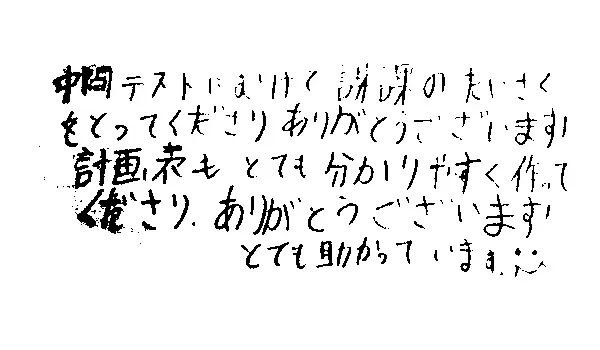 中間テストにむけて 課のたいさく
をとってくださり ありがとうございます!
計画表も とても 分かりやすく作って
くださり、ありがとうございます!
とても助かっています。